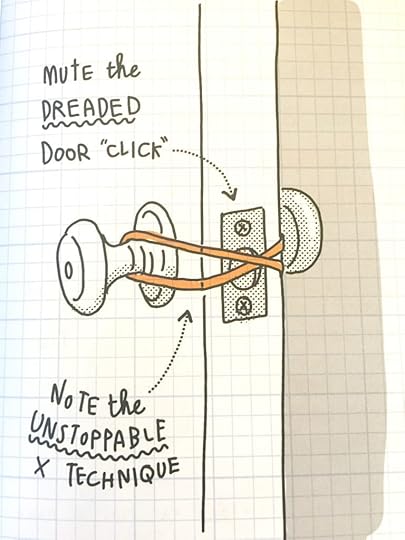 MUTE the
DREADED
DOOR "CLICK"
NOTE the
UNSTOPPABLE
X TECHNIQUE